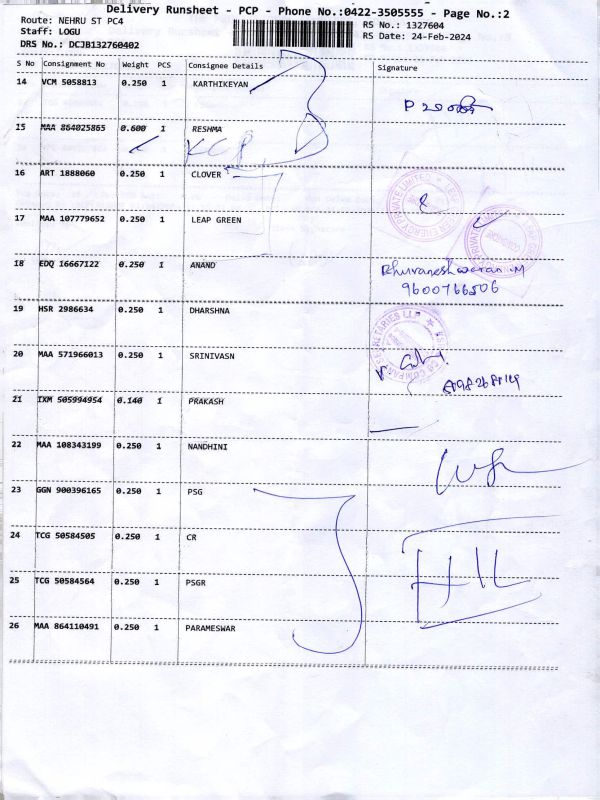 Delivery Runsheet - PCP - Phone No.:0422-3505555 - Page No.:2
Route: NEHRU ST PC4
RS No.: 1327604
Staff: LOGU
RS Date: 24-Feb-2024
DRS No.: DCJB132760402
S No Consignment No Weight PCS Consignee Details Signature
14 VCM 5058813 0.250 1 KARTHIKEYAN
15 MAA 864025865 0.600 1 RESHMA
KCP
16 ART 1888060 0.250 1 CLOVER
17 MAA 107779652 0.250 1 LEAP GREEN
18 EDQ 16667122 0.250 1 ANAND
Bhuvaneshwaran.M
9600766506
19 HSR 2986634 0.250 1 DHARSHNA
20 MAA 571966013 0.250 1 SRINIVASN
21 IXM 505994954 0.140 1 PRAKASH
22 MAA 108343199 0.250 1 NANDHINI
23 GGN 900396165 0.250 1 PSG
24 TCG 50584505 0.250 1 CR
25 TCG 50584564 0.250 1 PSGR
26 MAA 864110491 0.250 1 PARAMESWAR